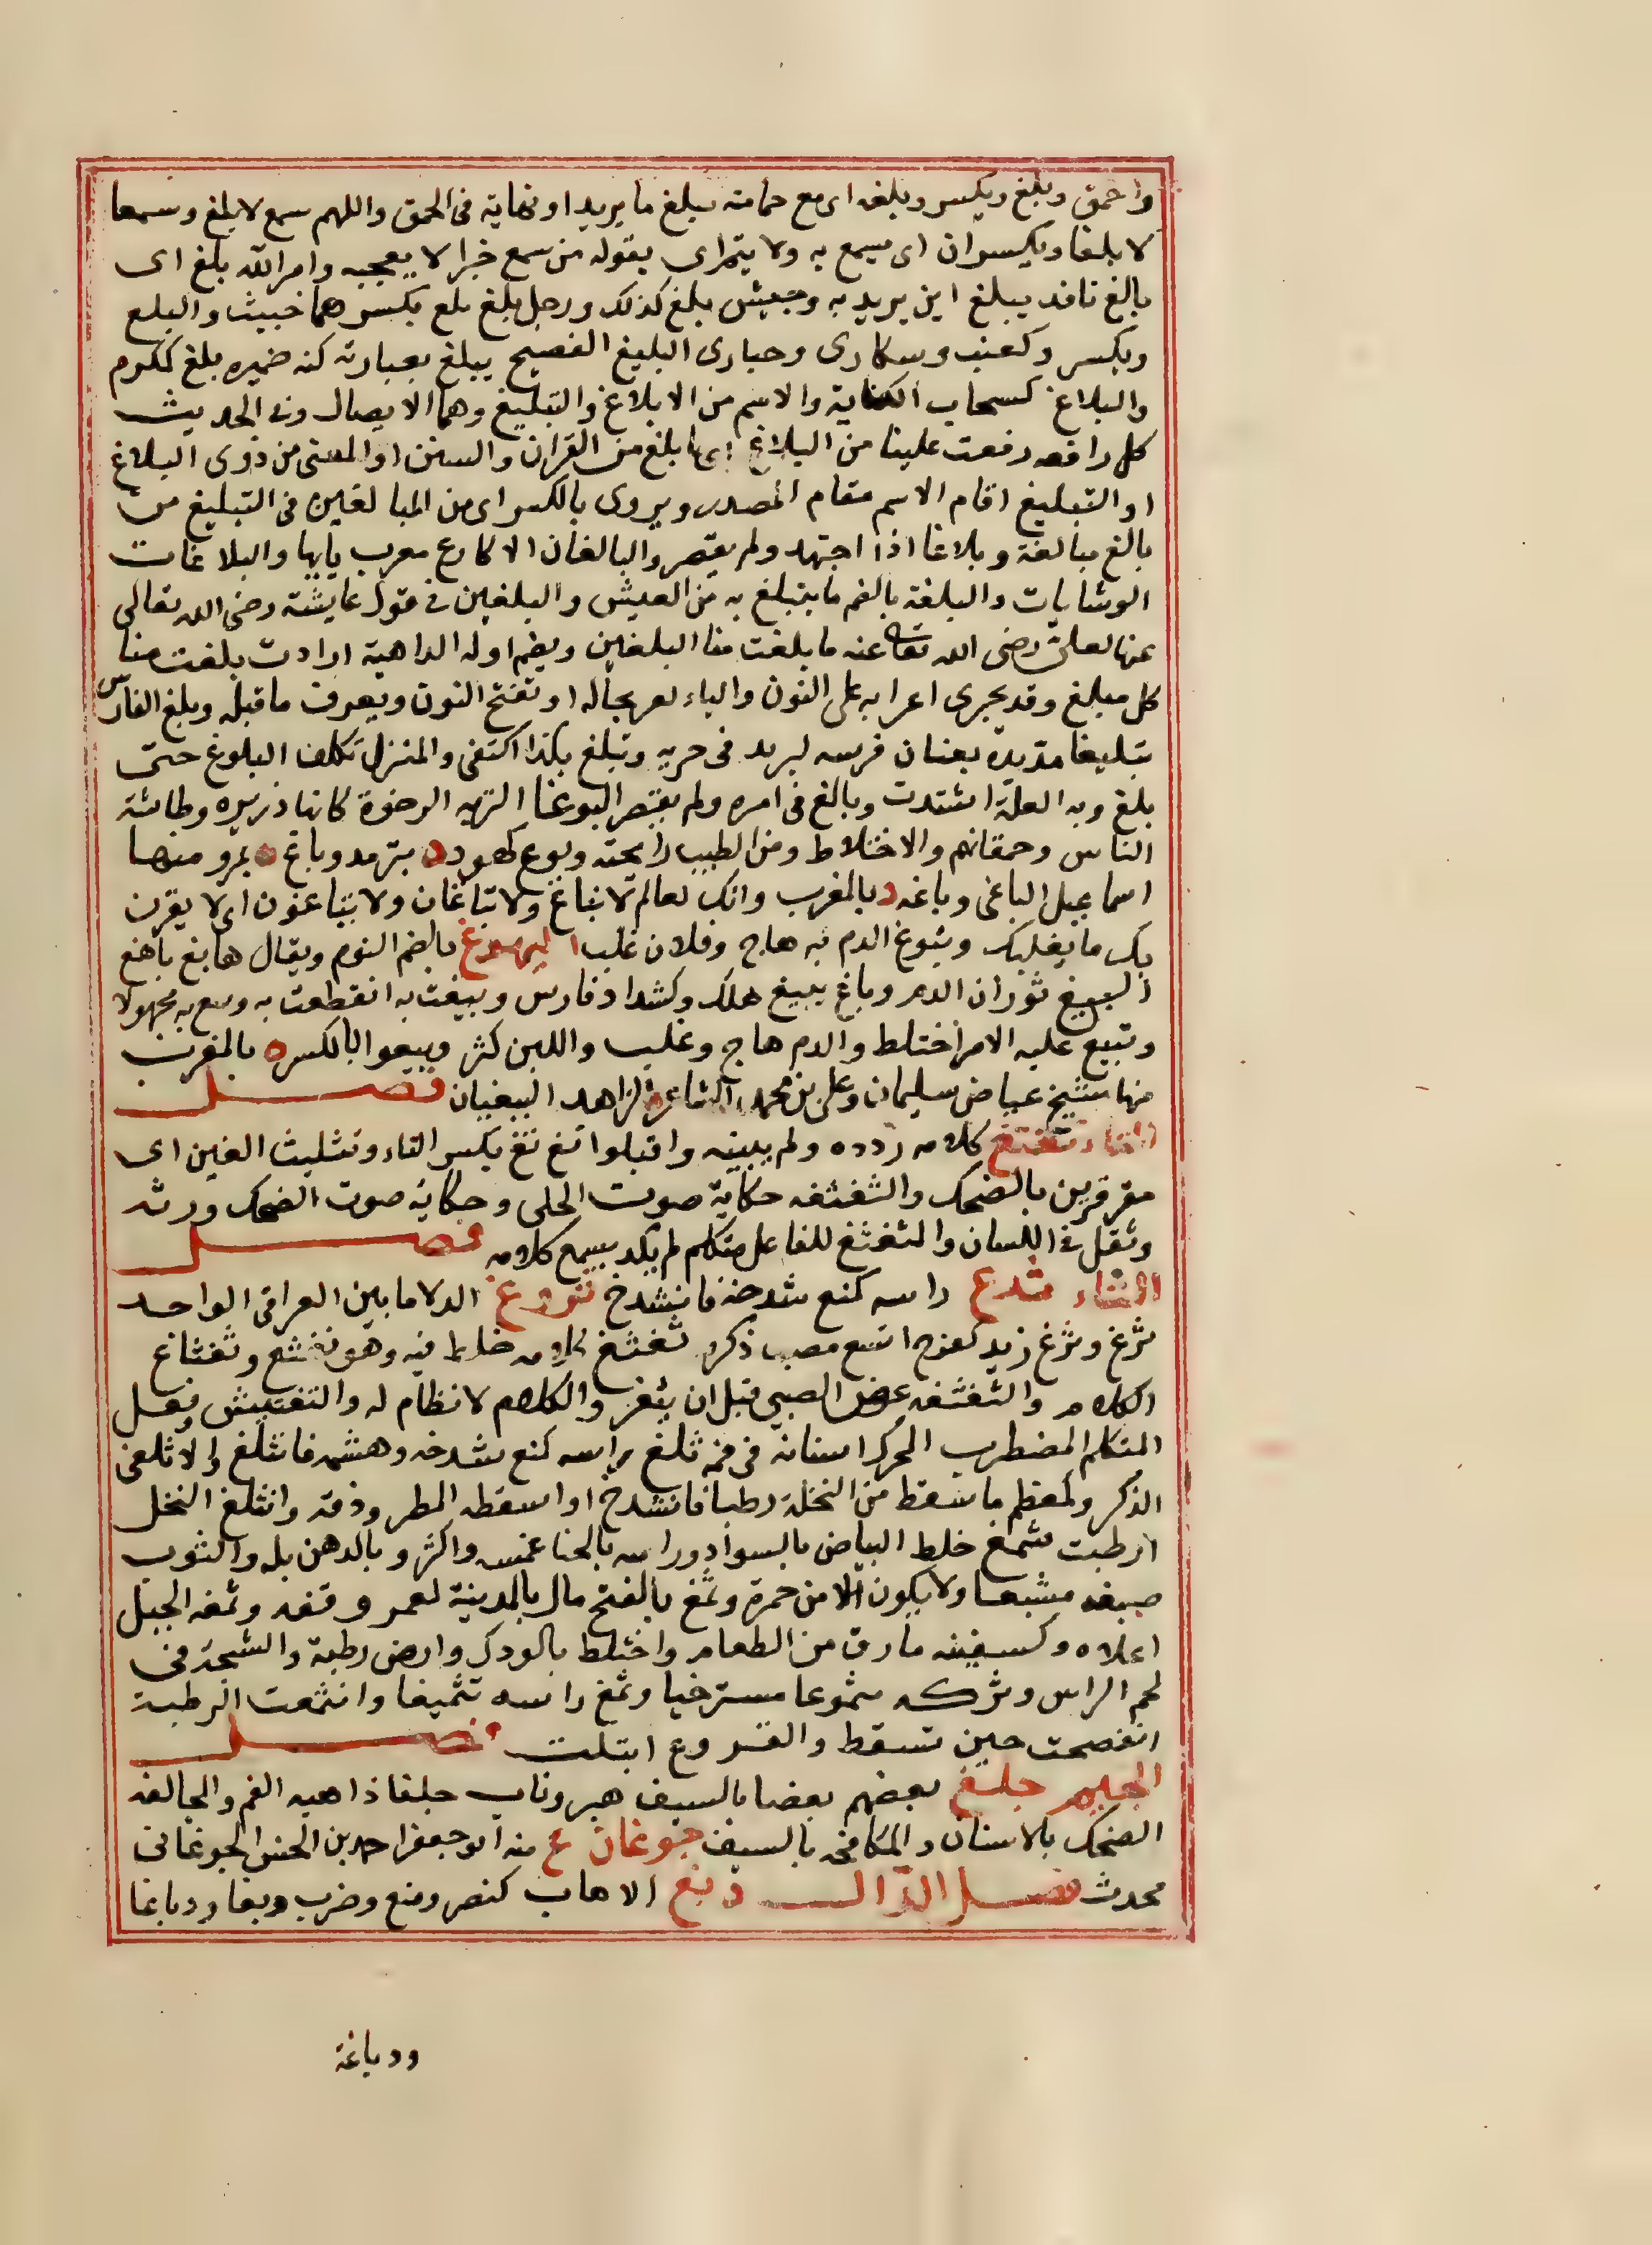 واحمق وبلغ ويكسر وبلغه اى مع حماقته يبلغ ما يريد او نهاية فى الحمق واللهم سمع لا بلغ وسمعا
لا بلغا ويكسران اى يسمع به ولا يتم او يقوله من سمع خبرا لا يعجبه وامر الله بلغ اى
بالغ نافذ يبلغ اين يريد به وجيش بلغ كذلك ورجل بلغ ملغ بكسرهما خبيث والبلغ
ويكسر وكعنب وسكارى وحبارى البليغ الفصيح يبلغ بعبارته كنه ضميره بلغ ككرم
والبلاغ كسحاب الكفاية والاسم من الابلاغ والتبليغ وهما الايصال وفى الحديث
كل رافعه رفعت علينا من البلاغ اى ما بلغ من القران والسنن او المعنى من ذوى البلاغ
او التبليغ اقام الاسم مقام المصدر ويروى بالكسر اى من المبالغين فى التبليغ من
بالغ مبالغة وبلاغا اذا اجتهد ولم يقصر والبالغان الاكارع معرب پايها والبلاغات
الوشايات والبلغة بالضم ما يتبلغ به من العيش والبلغين فى قول عايشة رضى الله تعالى
عنها لعلى رضى الله تعالى عنه ما بلغت منا البلغين ويضم اوله الداهية ارادت بلغت منا
كل مبلغ وقد يجرى اعرابه على النون والياء يقر بحاله او تفتح النون ويعرف ما قبله وبلغ الفارس
تبليغا مد يده بعنان فرسه ليريد فى جريه وتبلغ بكذا اكتفى والمنزل تكلف البلوغ حتى
بلغ وبه العلة اشتدت وبالغ فى امره ولم يقصر البوغا التربه الرخوة كانها ذريره وطاشة
الناس وحمقاهم والاختلاط ومن الطيب رايحته وبوغ كهود ة بترمد وباغ ة بمرو منها
اسماعيل الباغى وباغه د بالمغرب وانك لعالم لا تباغ ولا تباغان ولا تباغون اى لا يقرن
بك ما يغلبك وتبوغ الدم به هاج وفلان غلب البهوغ بالضم النوم ويقال هابغ باهغ
البيغ ثوران الدم وباغ يبيغ هلك وكشداد فارس وبيغت به انقطعت به وسع به مجهولا
وتبيغ عليه الامر اختلط والدم هاج وغلب واللبن كثر وبيغو بالكسر ة بالمغرب
منها شيخ عياض سليمان وعلى بن محمد الشاعر الزاهد البيغيان فصل
التاء تغتغ كلامه ردده ولم يبينه واقبلوا تغ تغ بكسر التاء وتثليث الغين اى
مقرقرين بالضحك والتغتغه حكاية صوت الحلى وحكاية صوت الضحك ورته
وثقل فى اللسان والتغتغ للفاعل متكلم لم يكد يسمع كلامه فصل
الثاء ثدغ راسه كنع شدخه فانشدخ ثروغ الدلاء ما بين العراقى الواحد
ثرغ وثرغ زيد كفرح اتسع مصب ذكره ثغثغ كلامه خلط فيه وهو ثغثغ وثغثاغ
الكلام والثغثغه عض الصبى قبل ان يثغر والكلام لا نظام له والتفتيش وفعل
المتكلم المضطرب المحرك اسنانه فى فمه ثلغ راسه كنع شدخه وهشمه فانثلغ والاثلغى
الذكر وكمعظم ما سقط من النخلة رطبا فانشدخ او اسقطه المطر ودقه وانثلغ النخل
ارطبت ثمغ خلط البياض بالسواد وراسه بالحنا غمسه واكثر وبالدهن بله والثوب
صبغه مشبعا ولا يكون الا من حمرة وثمغ بالفتح مال بالمدينة لعمر وقفه وثمغه الجبل
اعلاه وكسفينه ما رق من الطعام واختلط بالودك وارض رطبة والشجة فى
لحم الراس وتركه مثموغا مسترخيا وثمغ راسه تثميغا وانثمغت الرطبة
انفضحت حين تسقط والقروح ابتلت فصل
الجيم جلغ بعضهم بعضا بالسيف هبر وناب جلغا ذاهبه الفم والجالغه
الضحك بالاسنان والمكافحه بالسيف جوغان ع منه ابو جعفر احمد بن الحسن الجوغانى
محدث فصل الدال دبغ الاهاب كنصر ومنع وضرب دبغا ودباغا
ودباغة